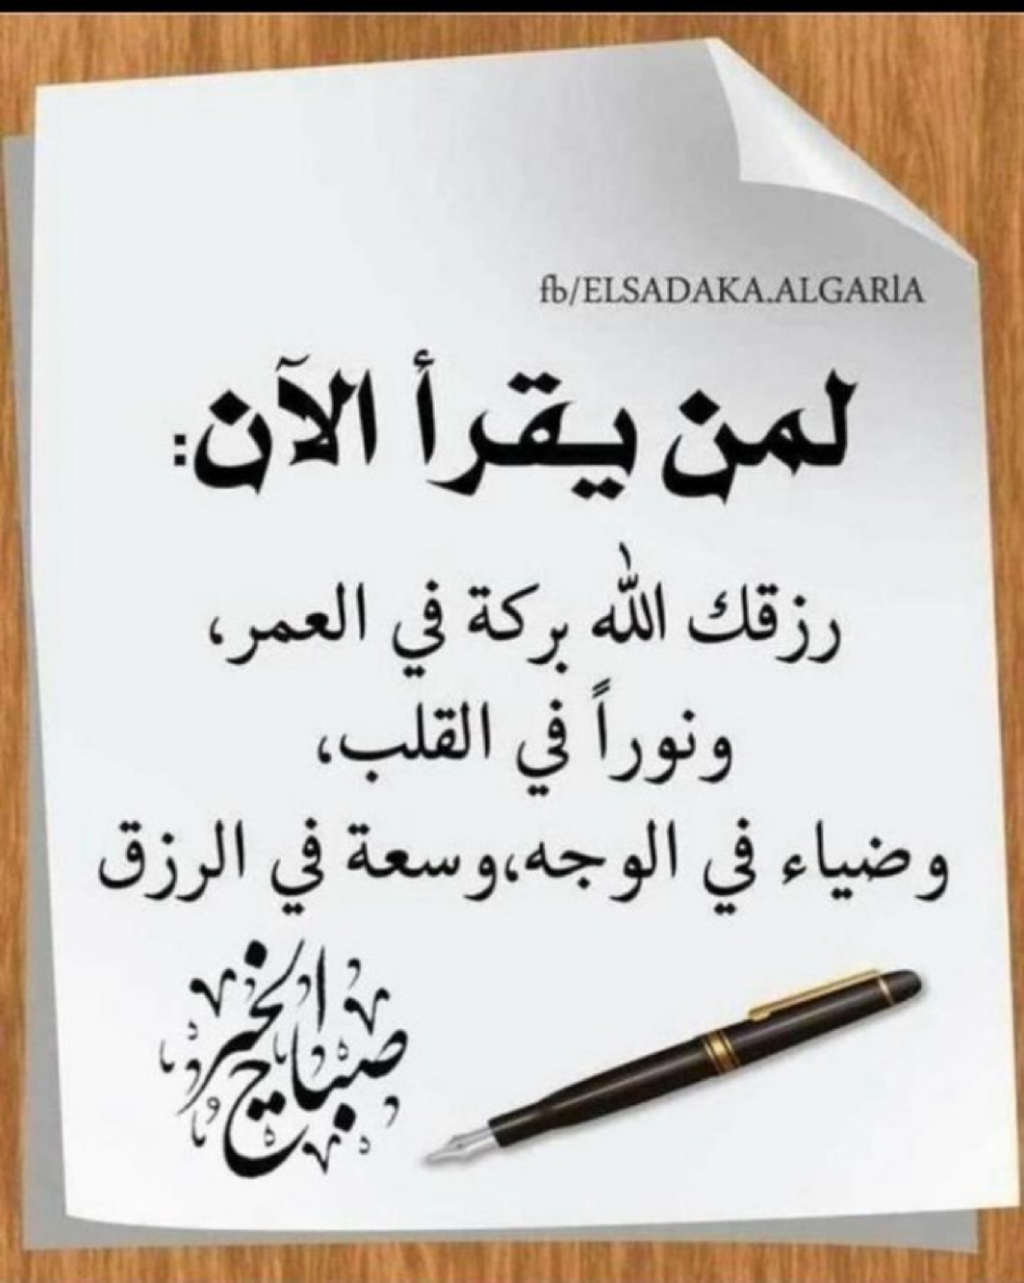 fb/ELSADAKA.ALGARlA
لمن يقرأ الآن:
رزقك الله بركة في العمر،
ونوراً في القلب،
وضياء في الوجه،وسعة في الرزق
صباح الخير